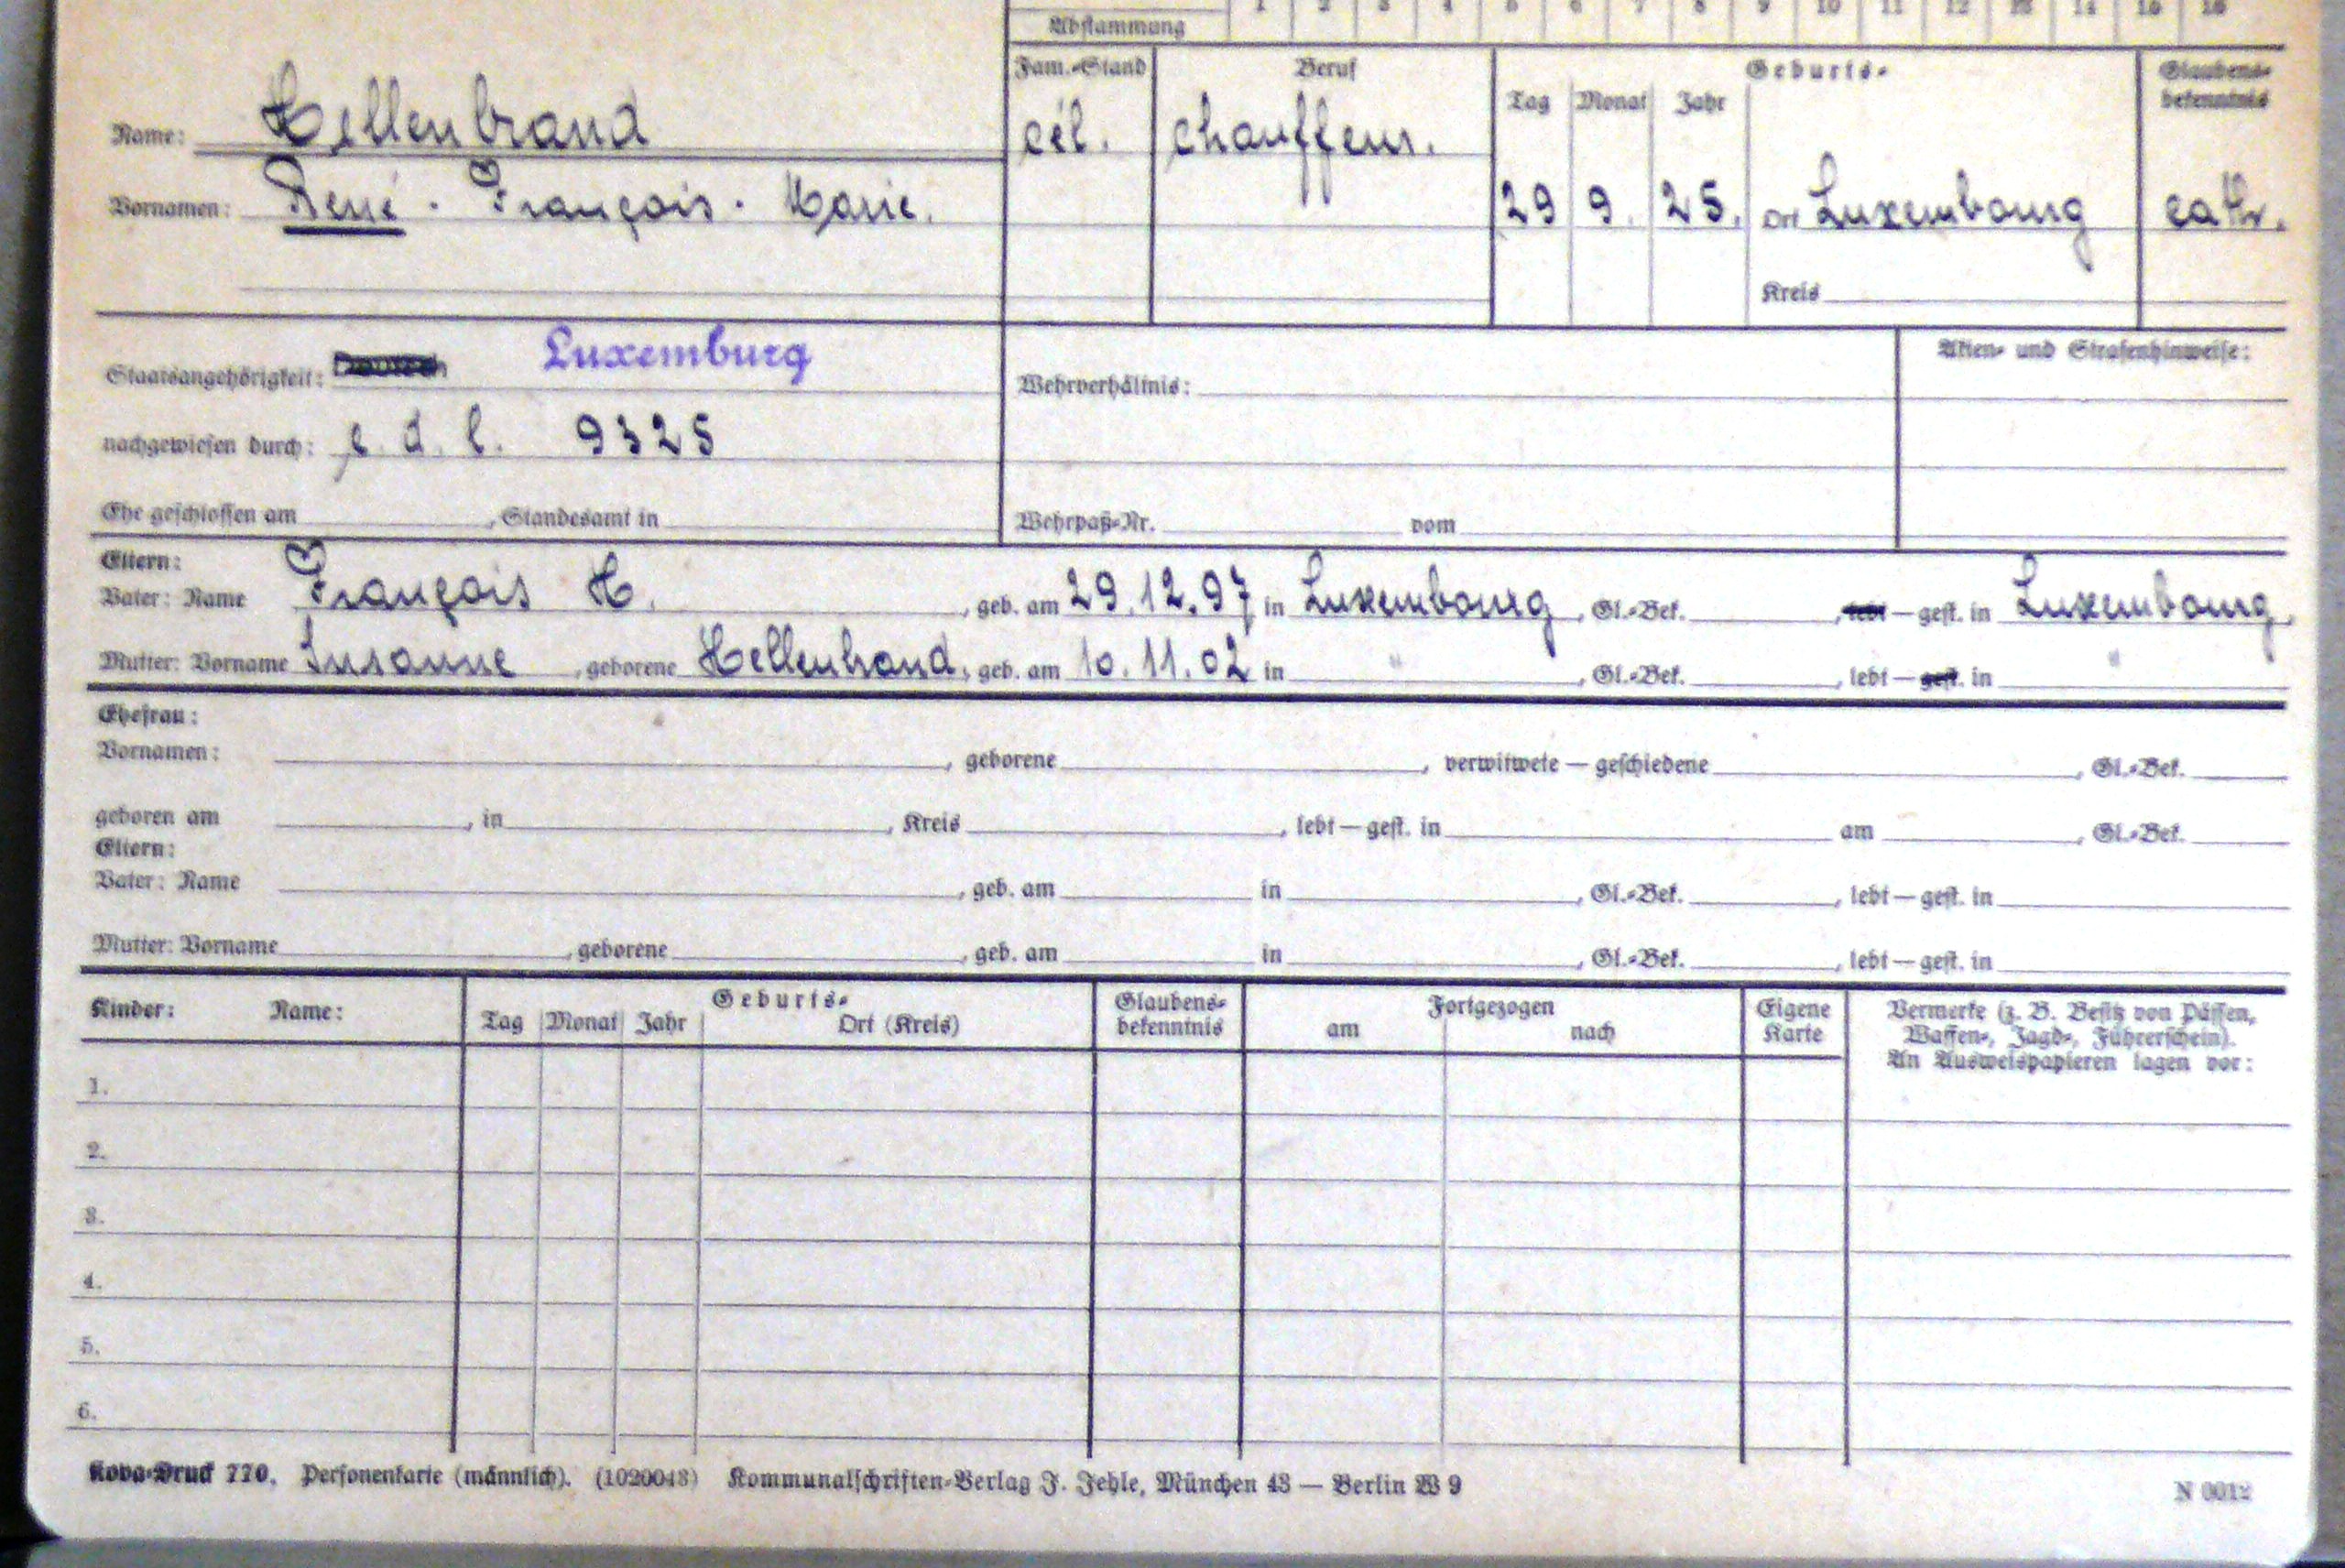 Abstammung 1 2 3 4 5 6 7 8 9 10 11 12 13 14 15 16
Fam.-Stand Beruf Geburts- Glaubens-
Tag Monat Jahr bekenntnis
Name: Hellenbrand cél. chauffeur.
Vornamen: René · François · Marie. 29 9. 25. Ort Luxembourg cath.
Kreis
Staatsangehörigkeit: Deutsch Luxemburg Wehrverhältnis: Akten- und Strafenhinweise:
nachgewiesen durch: c. d. l. 9325
Ehe geschlossen am , Standesamt in Wehrpaß-Nr. vom
Eltern:
Vater: Name François H. , geb. am 29.12.97 in Luxembourg, Gl.-Bek. , lebt — gest. in Luxembourg.
Mutter: Vorname Susanne , geborene Hellenbrand, geb. am 10.11.02 in " , Gl.-Bek. , lebt — gest. in "
Ehefrau:
Vornamen: , geborene , verwitwete — geschiedene , Gl.-Bek.
geboren am , in , Kreis , lebt — gest. in am , Gl.-Bek.
Eltern:
Vater: Name , geb. am in , Gl.-Bek. , lebt — gest. in
Mutter: Vorname , geborene , geb. am in , Gl.-Bek. , lebt — gest. in
Kinder: Name: Geburts- Glaubens- Fortgezogen Eigene Vermerke (z. B. Besitz von Pässen,
Tag Monat Jahr Ort (Kreis) bekenntnis am nach Karte Waffen-, Jagd-, Führerschein).
An Ausweispapieren lagen vor:
1.
2.
3.
4.
5.
6.
Kova-Druck 770. Personenkarte (männlich). (1020043) Kommunalschriften-Verlag J. Jehle, München 43 — Berlin W 9 N 0012